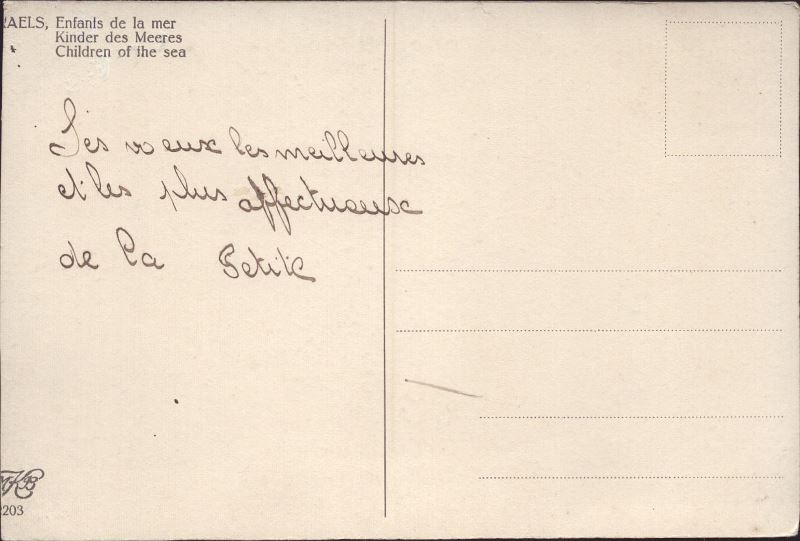 RAELS, Enfants de la mer
Kinder des Meeres
Children of the sea
Les voeux les meilleures
et les plus affectueusx
de la Petite
KB
203